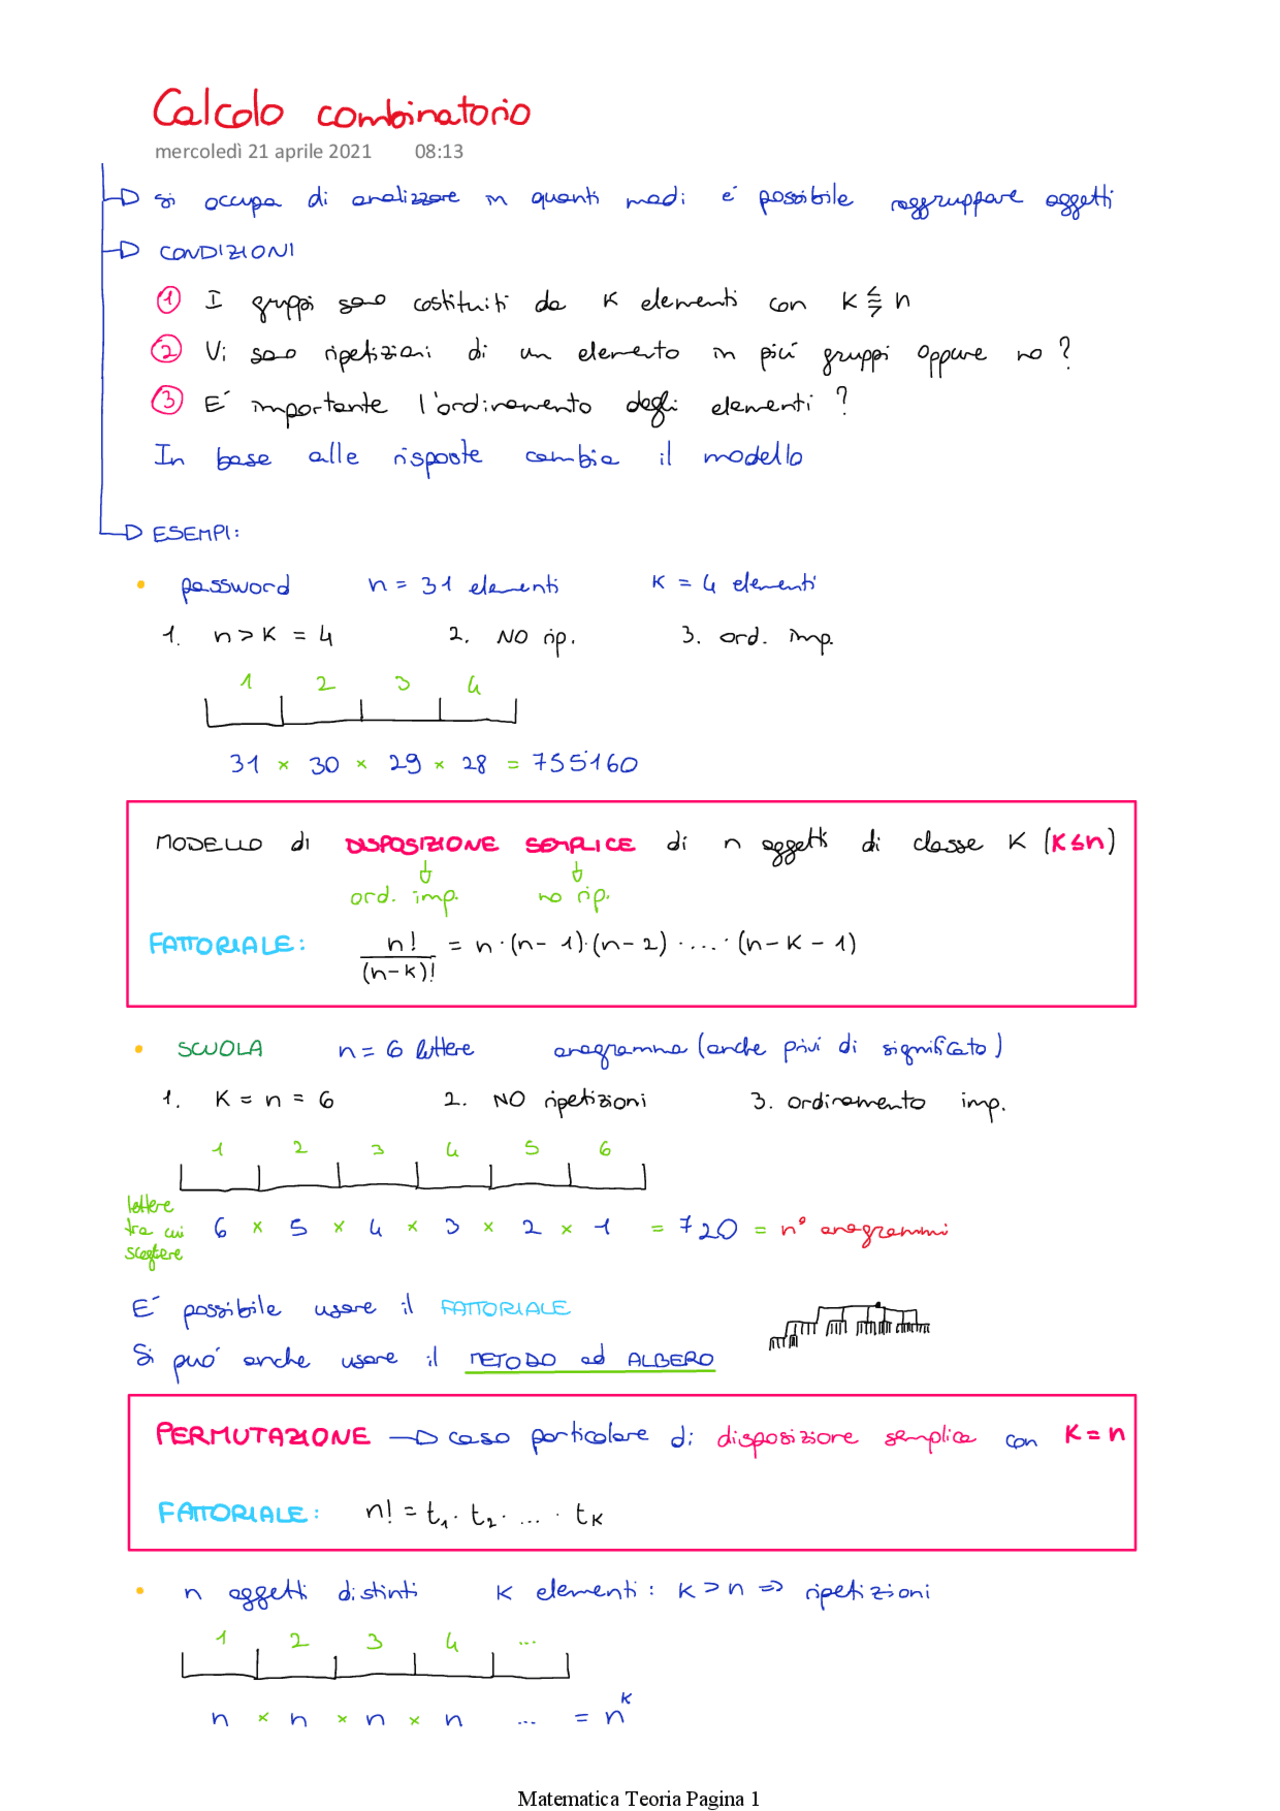 Calcolo combinatorio
mercoledì 21 aprile 2021 08:13
si occupa di analizzare in quanti modi é possibile raggruppare oggetti
CONDIZIONI
① I gruppi sono costituiti da K elementi con K ⪋ n
② Vi sono ripetizioni di un elemento in piú gruppi oppure no ?
③ É importante l'ordinamento degli elementi ?
In base alle risposte cambia il modello
ESEMPI:
• password n = 31 elementi K = 4 elementi
1. n > K = 4 2. NO rip. 3. ord. imp.
1 2 3 4
31 × 30 × 29 × 28 = 755160
MODELLO di DISPOSIZIONE SEMPLICE di n oggetti di classe K (K≤n)
ord. imp. no rip.
FATTORIALE: n!/(n-k)! = n·(n-1)·(n-2)·...·(n-K-1)
• SCUOLA n = 6 lettere anagramma (anche privi di significato)
1. K = n = 6 2. NO ripetizioni 3. ordinamento imp.
1 2 3 4 5 6
lettere tra cui scegliere 6 × 5 × 4 × 3 × 2 × 1 = 720 = n° anagrammi
É possibile usare il FATTORIALE
Si puó anche usare il METODO ad ALBERO
PERMUTAZIONE → caso particolare di disposizione semplice con K = n
FATTORIALE: n! = t₁· t₂· ... · tK
• n oggetti distinti K elementi: K > n ⇒ ripetizioni
1 2 3 4 ...
n × n × n × n ... = n^K
Matematica Teoria Pagina 1